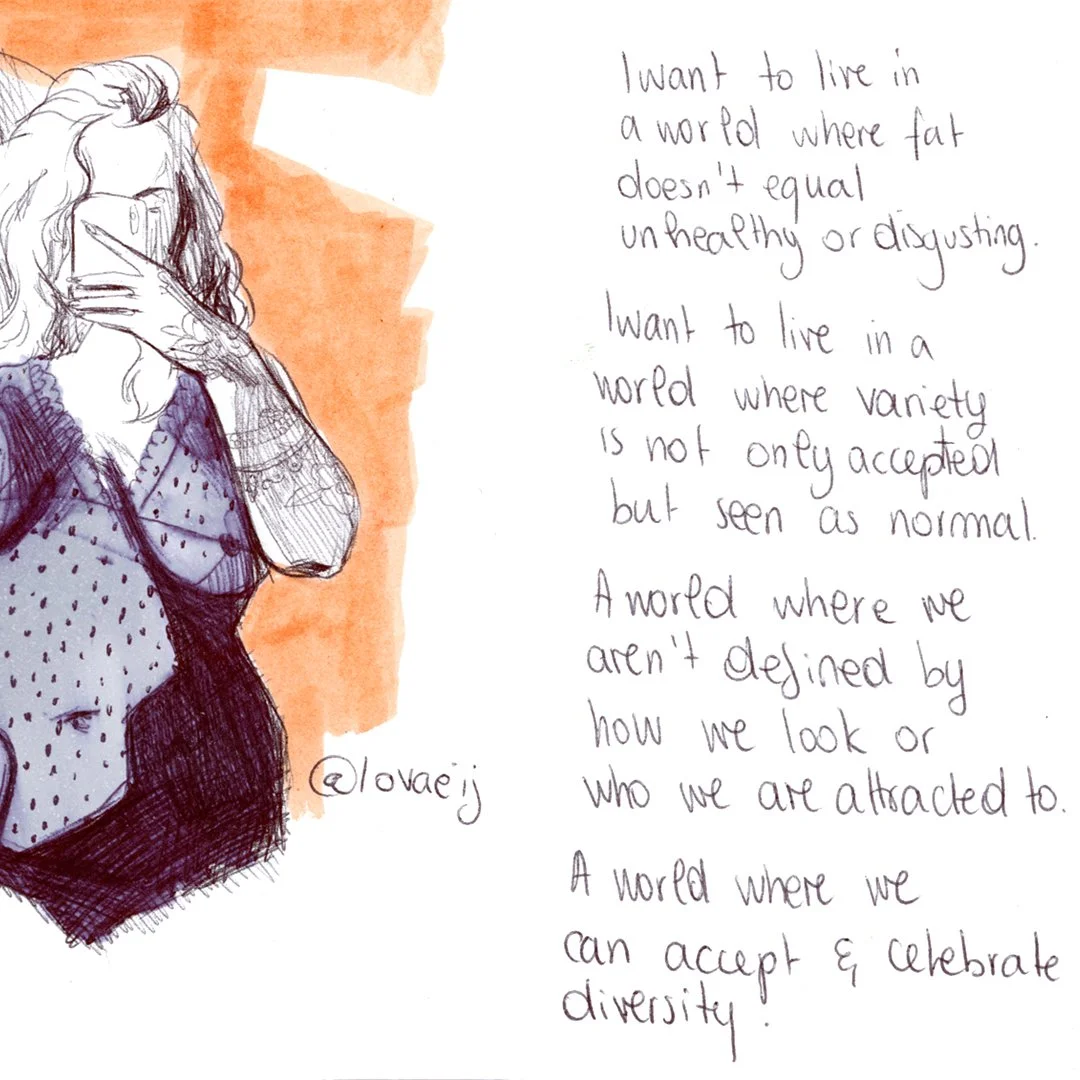 I want to live in
a world where fat
doesn't equal
unhealthy or disgusting.
I want to live in a
world where variety
is not only accepted
but seen as normal.
A world where we
aren't defined by
how we look or
who we are attracted to.
A world where we
can accept & celebrate
diversity.
@lovaeij